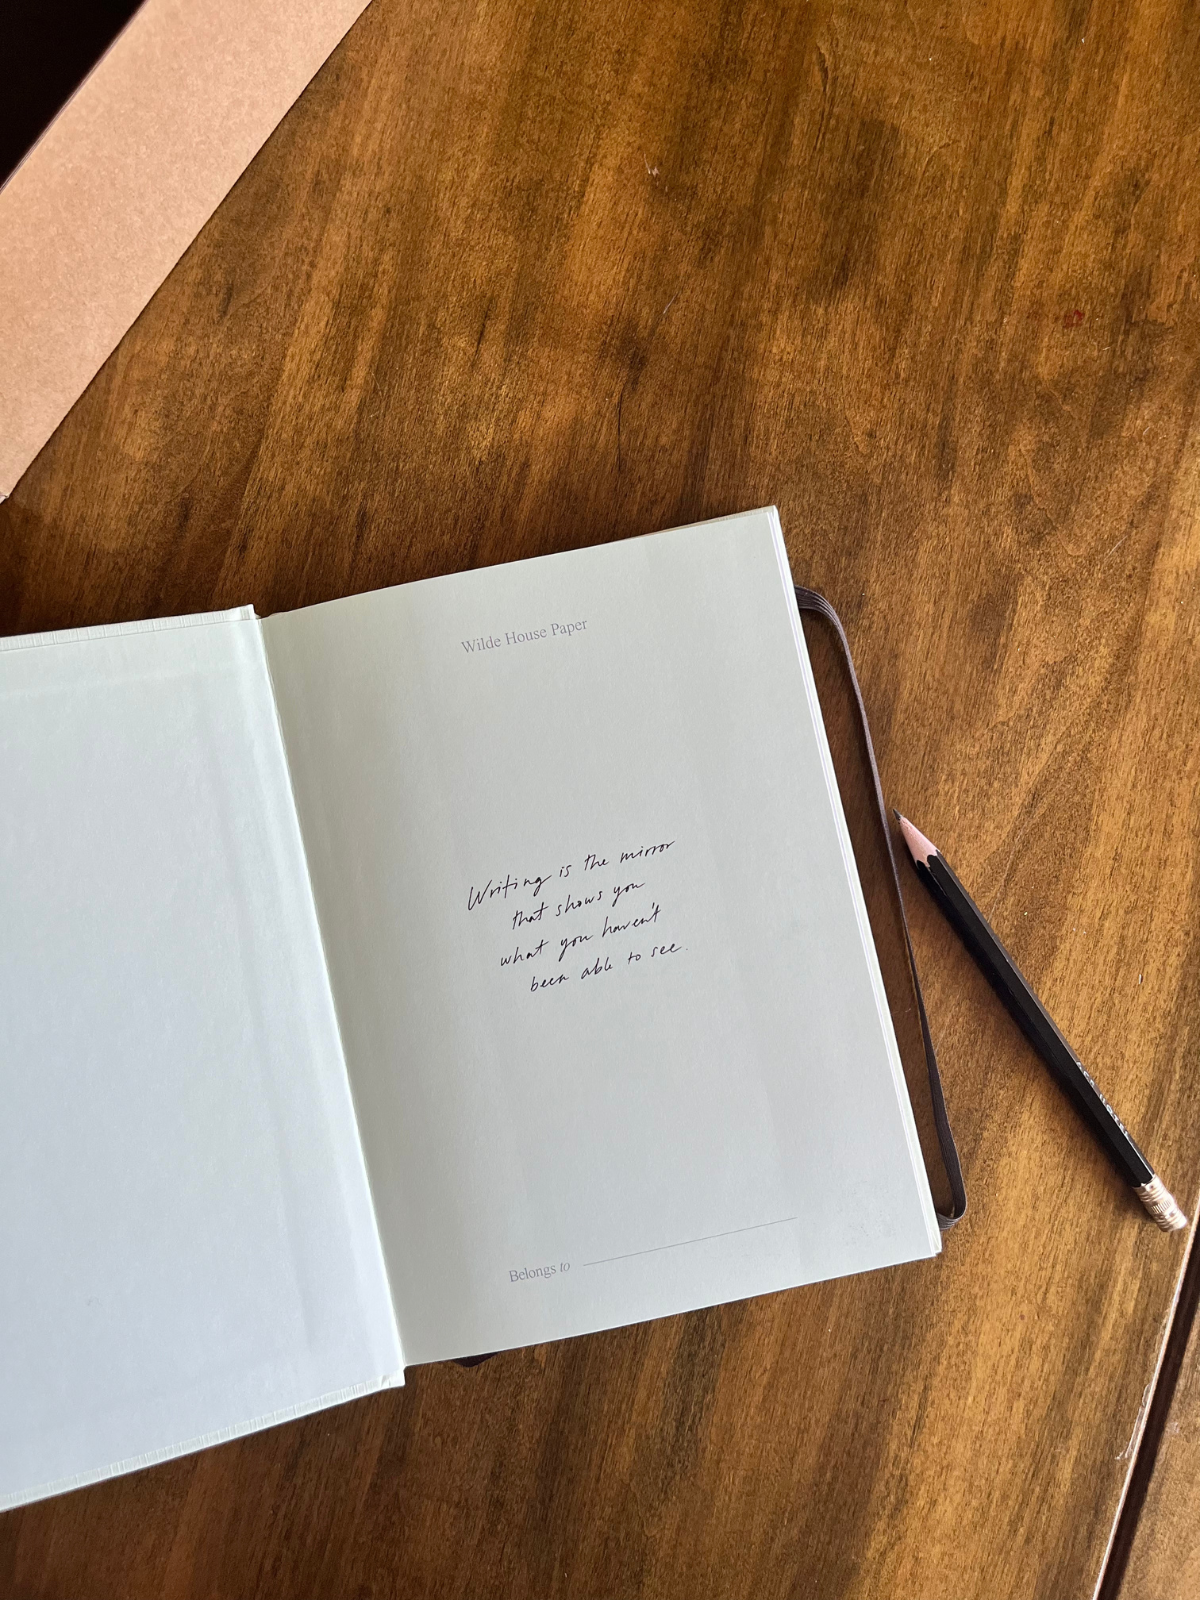 Wilde House Paper
Writing is the mirror
that shows you
what you haven't
been able to see.
Belongs to